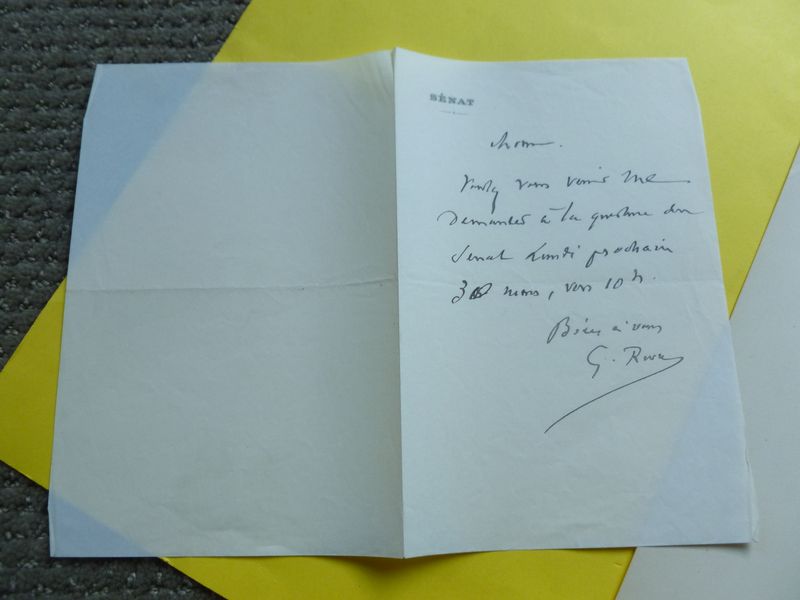 SÉNAT
Mon
Voulez vous venir me
Demander à la questure du
Senat Lundi prochain
30 mars, vers 10 h.
Bien à vous
G. Rive